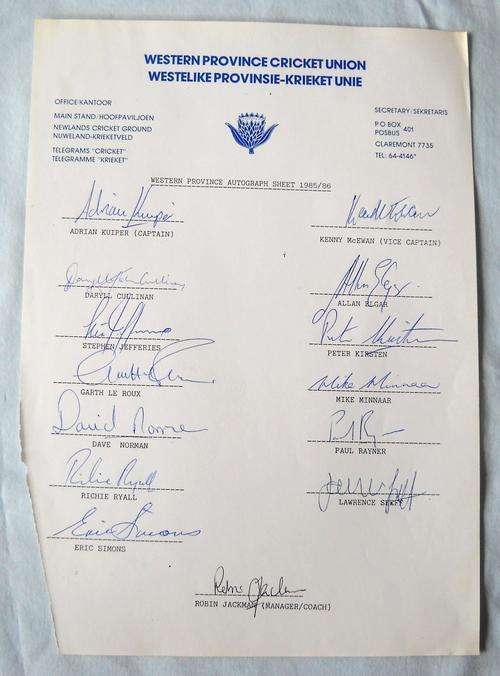 WESTERN PROVINCE CRICKET UNION
WESTELIKE PROVINSIE-KRIEKET UNIE
OFFICE/KANTOOR
MAIN STAND/HOOFPAVILJOEN
NEWLANDS CRICKET GROUND
NUWELAND-KRIEKETVELD
TELEGRAMS "CRICKET"
TELEGRAMME "KRIEKET"
SECRETARY/SEKRETARIS
P O BOX
POSBUS 401
CLAREMONT 7735
TEL: 64-4146
WESTERN PROVINCE AUTOGRAPH SHEET 1985/86
Adrian Kuiper
ADRIAN KUIPER (CAPTAIN)
KENNY McEWAN (VICE CAPTAIN)
DARYLL CULLINAN
ALLAN ELGAR
STEPHEN JEFFERIES
PETER KIRSTEN
GARTH LE ROUX
Mike Minnaar
MIKE MINNAAR
David Norman
DAVE NORMAN
PAUL RAYNER
Richie Ryall
RICHIE RYALL
LAWRENCE SEEFF
Eric Simons
ERIC SIMONS
ROBIN JACKMAN (MANAGER/COACH)